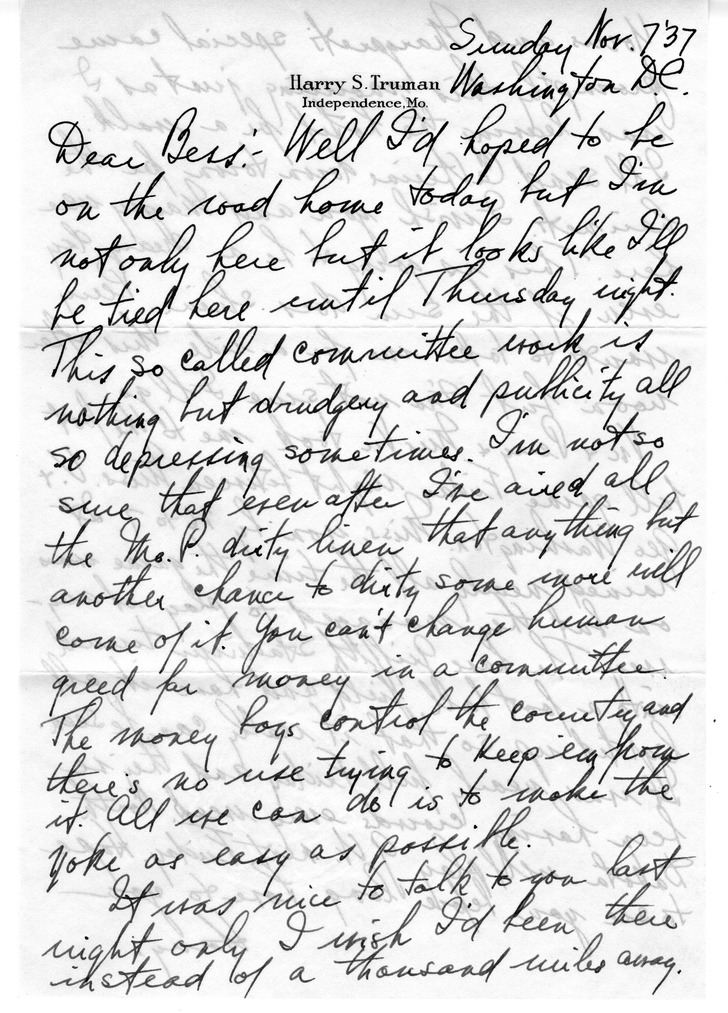 Sunday Nov. 7 '37
Harry S. Truman
Washington D.C.
Independence, Mo.
Dear Bess:- Well I'd hoped to be
on the road home today but I'm
not only here but it looks like I'll
be tied here until Thursday night.
This so called committee work is
nothing but drudgery and publicity all
so depressing sometimes. I'm not so
sure that even after I've aired all
the Mo. P. dirty linen that anything but
another chance to dirty some more will
come of it. You can't change human
greed for money in a committee.
The money boys control the country and
there's no use trying to keep em from
it. All we can do is to make the
yoke as easy as possible.
It was nice to talk to you last
night only I wish I'd been there
instead of a thousand miles away.